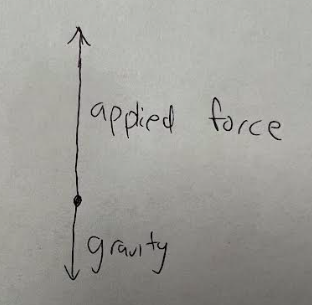 applied force
gravity